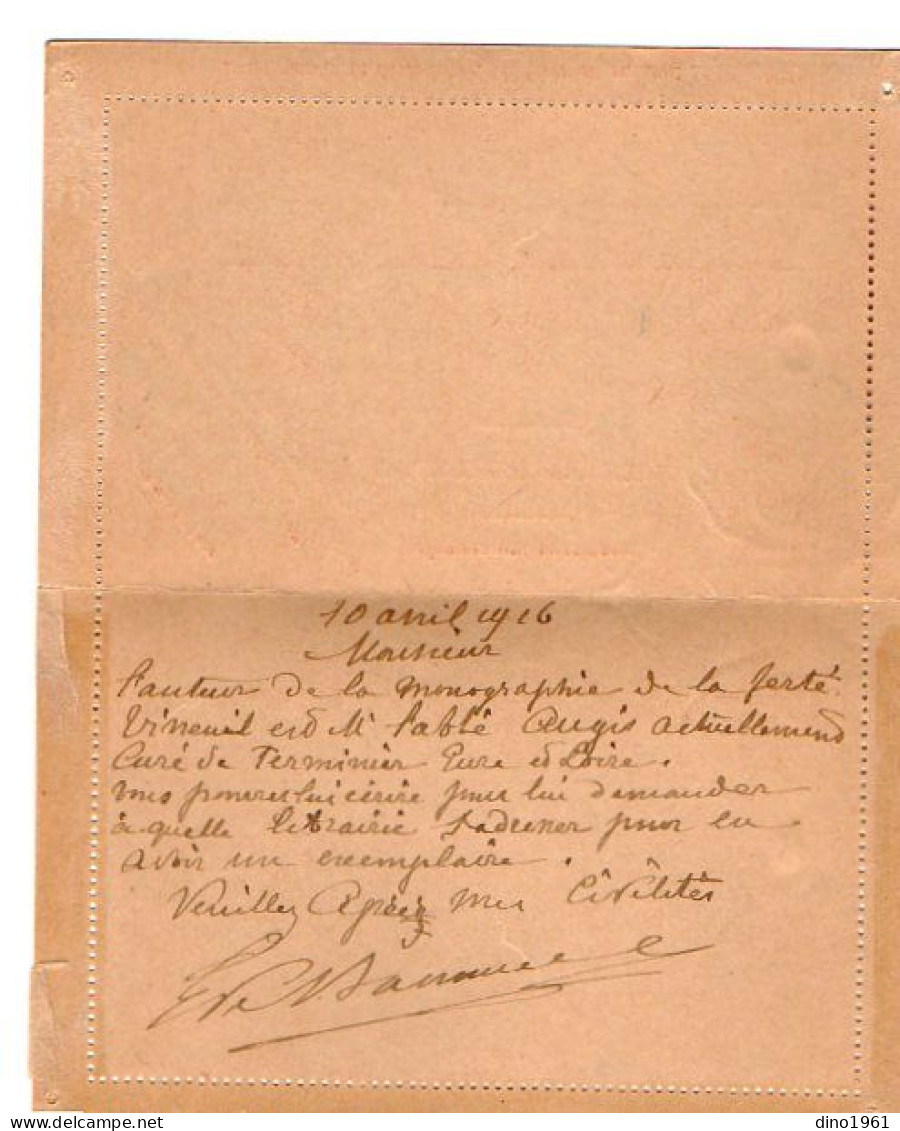 10 avril 1916
Monsieur
l'auteur de la monographie de la ferté
Vineuil est Mr l'abbé Augis actuellement
Curé de Terminier Eure et Loire.
Vous pouvez lui écrire pour lui demander
à quelle librairie s'adresser pour en
avoir un exemplaire.
Veuillez Agréer mes Civilités
dino1961